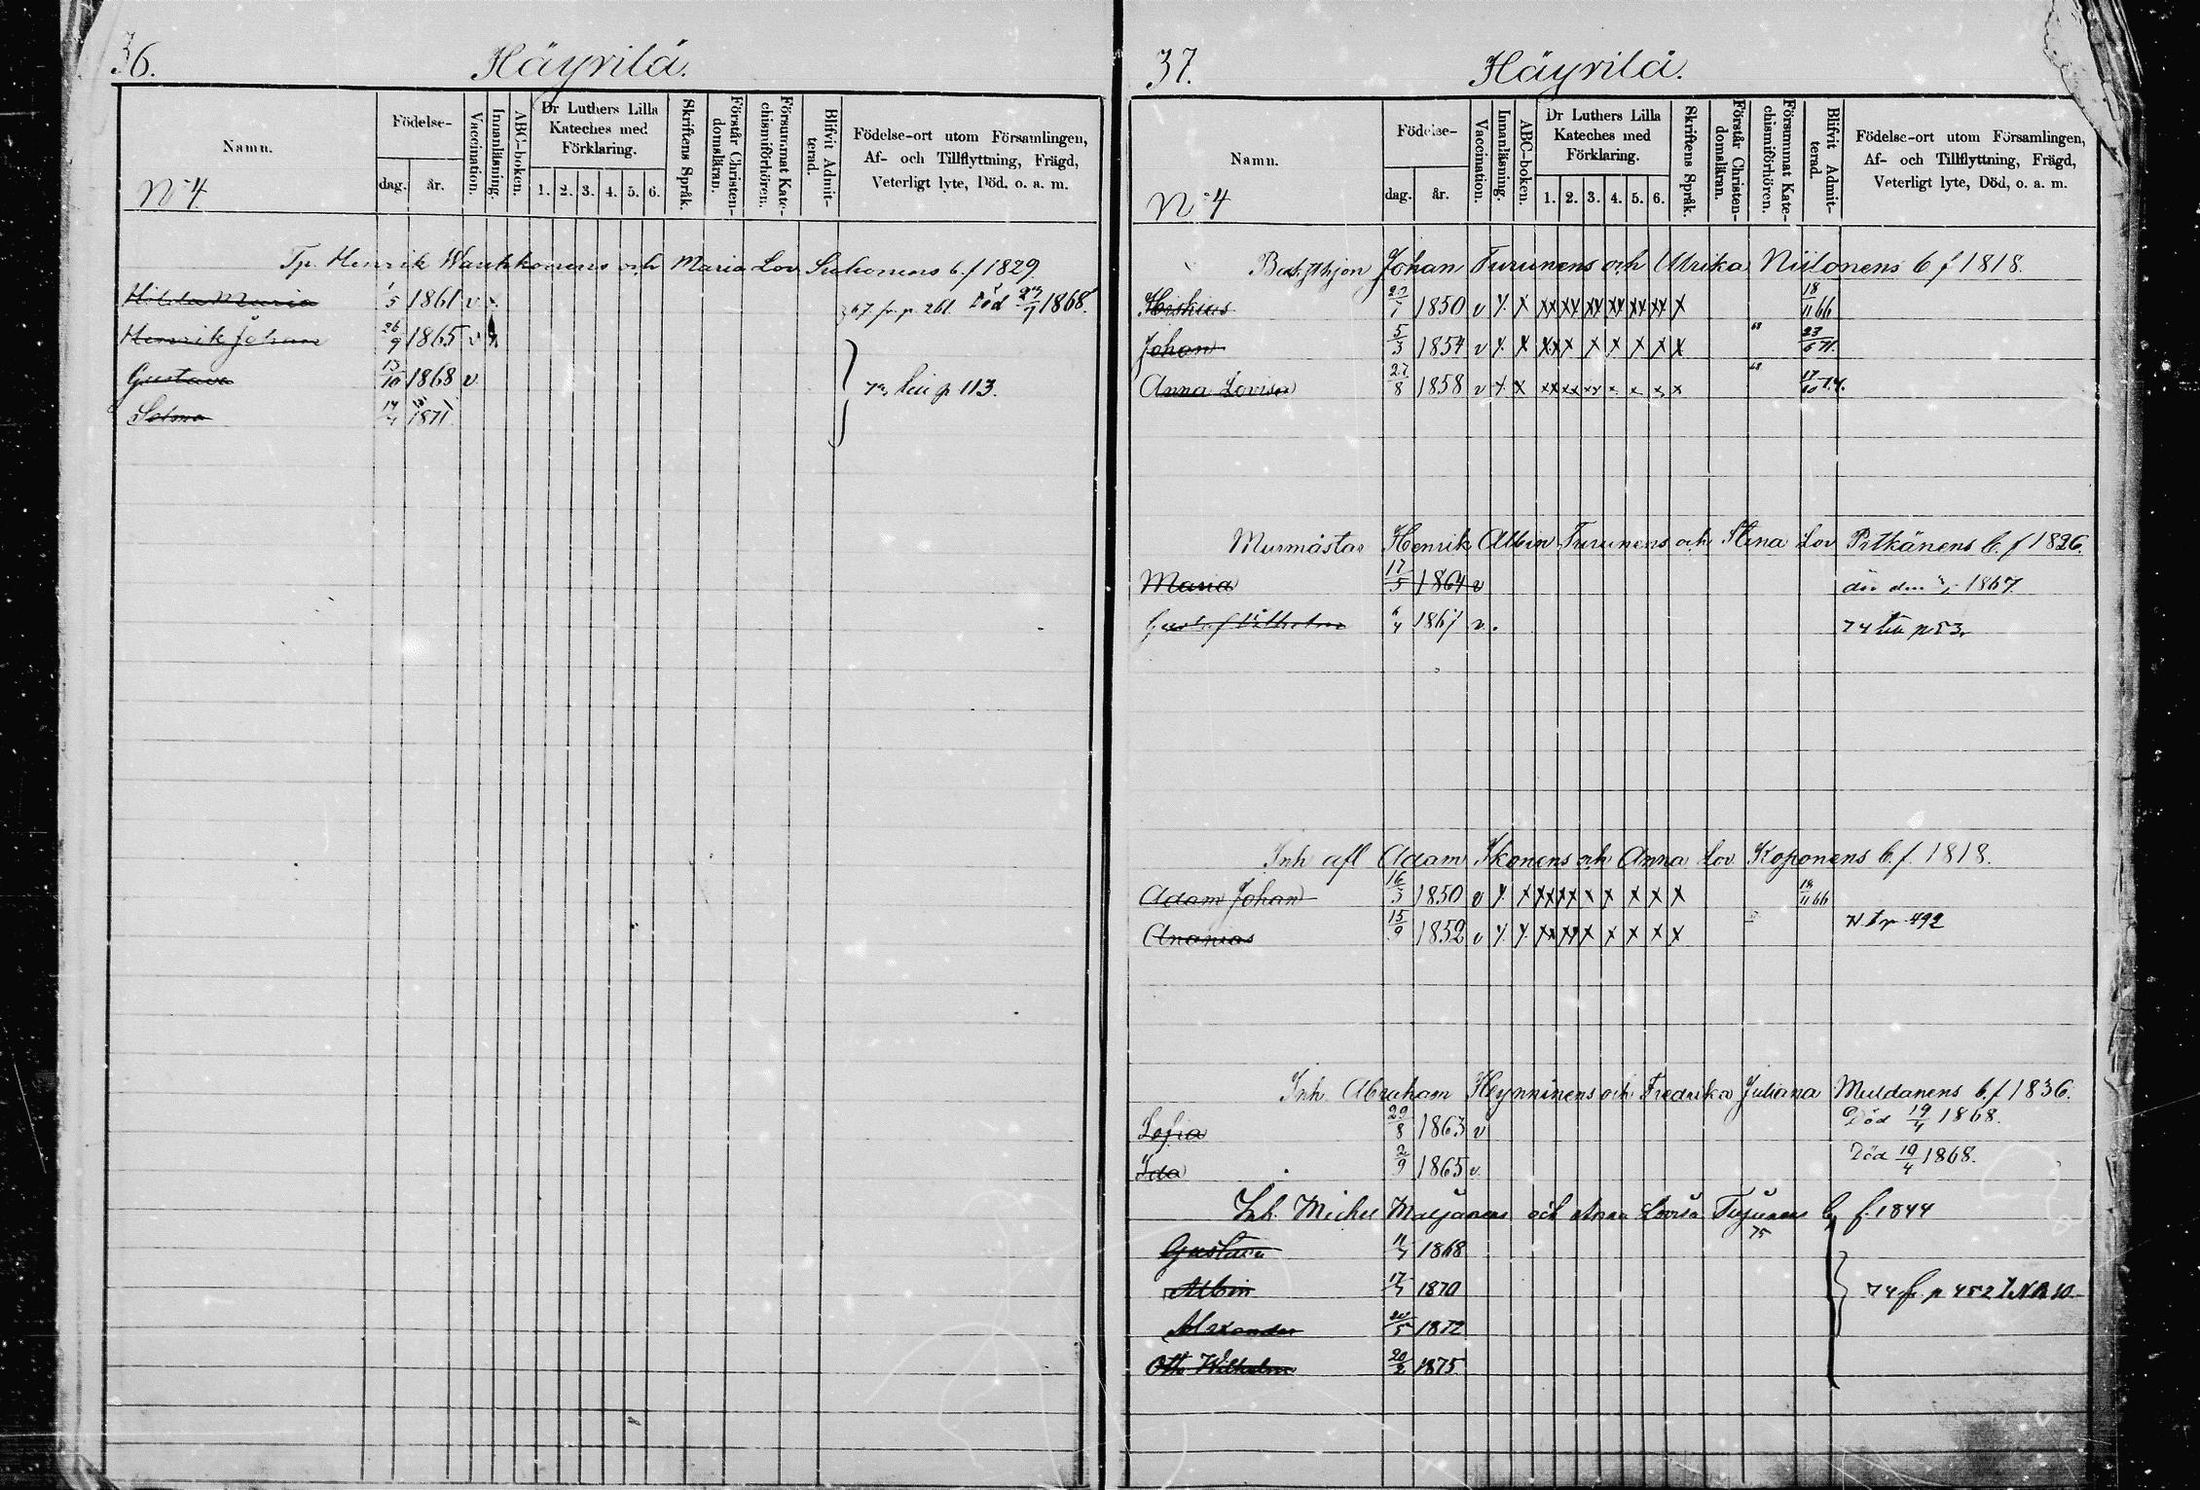 36.
Häyrilä.
Namn.
Födelse-
dag. år.
Vaccination.
Innanläsning.
ABC-boken.
Dr Luthers Lilla
Kateches med
Förklaring.
1. 2. 3. 4. 5. 6.
Skriftens Språk.
Förstår Christen-
domsläran.
Försummat Kate-
chismiförhören.
Blifvit Admit-
terad.
Födelse-ort utom Församlingen,
Af- och Tillflyttning, Frägd,
Veterligt lyte, Död, o. a. m.
N:4
Tp. Henrik Wauhkonens och Maria Lov. Suhonens b. f 1829.
Hilda Maria 1/5 1861 v 67 fr. p. 261. Död 1868.
Henrik Johan 26/9 1865 v
Gustava 13/10 1868 v p 113.
Selma 1871
37.
Häyrilä.
Namn.
Födelse-
dag. år.
Vaccination.
Innanläsning.
ABC-boken.
Dr Luthers Lilla
Kateches med
Förklaring.
1. 2. 3. 4. 5. 6.
Skriftens Språk.
Förstår Christen-
domsläran.
Försummat Kate-
chismiförhören.
Blifvit Admit-
terad.
Födelse-ort utom Församlingen,
Af- och Tillflyttning, Frägd,
Veterligt lyte, Död, o. a. m.
N:4
Johan Turunens och Ulrika Niilonens b f 1818.
Hiskias 1850 v x x xx xx xx xx xx xx x 18/11 66
Johan 5/3 1854 v x x xx x x x x x x 23/6 71.
Anna Lovisa 27/8 1858 v x x xx xx xx x x x x
Murmästar Henrik Albin Turunens och Stina Lov Pitkänens b. f 1826.
Maria 17/5 1864 v 1867.
Gustaf Vilhelm 6/4 1867 v. 74 p 53.
Inh afl Adam Ikonens och Anna Lov. Koponens b. f. 1818.
Adam Johan 16/3 1850 v x x xx xx x x x x x 18/11 66
Ananias 15/9 1852 v x x xx xx x x x x x p 492
Inh. Abraham Heynninens och Fredrika Juliana Muldanens b. f 1836.
Sofia 29/8 1863 v Död 19/4 1868.
Ida 2/9 1865 v. Död 19/4 1868.
Inh. Michel och Anna Lovisa b. f. 1844
75
Gustava 1868
Albin 1870 74 fr. p 452
Alexander 1872
Otto Wilhelm 20/2 1875.